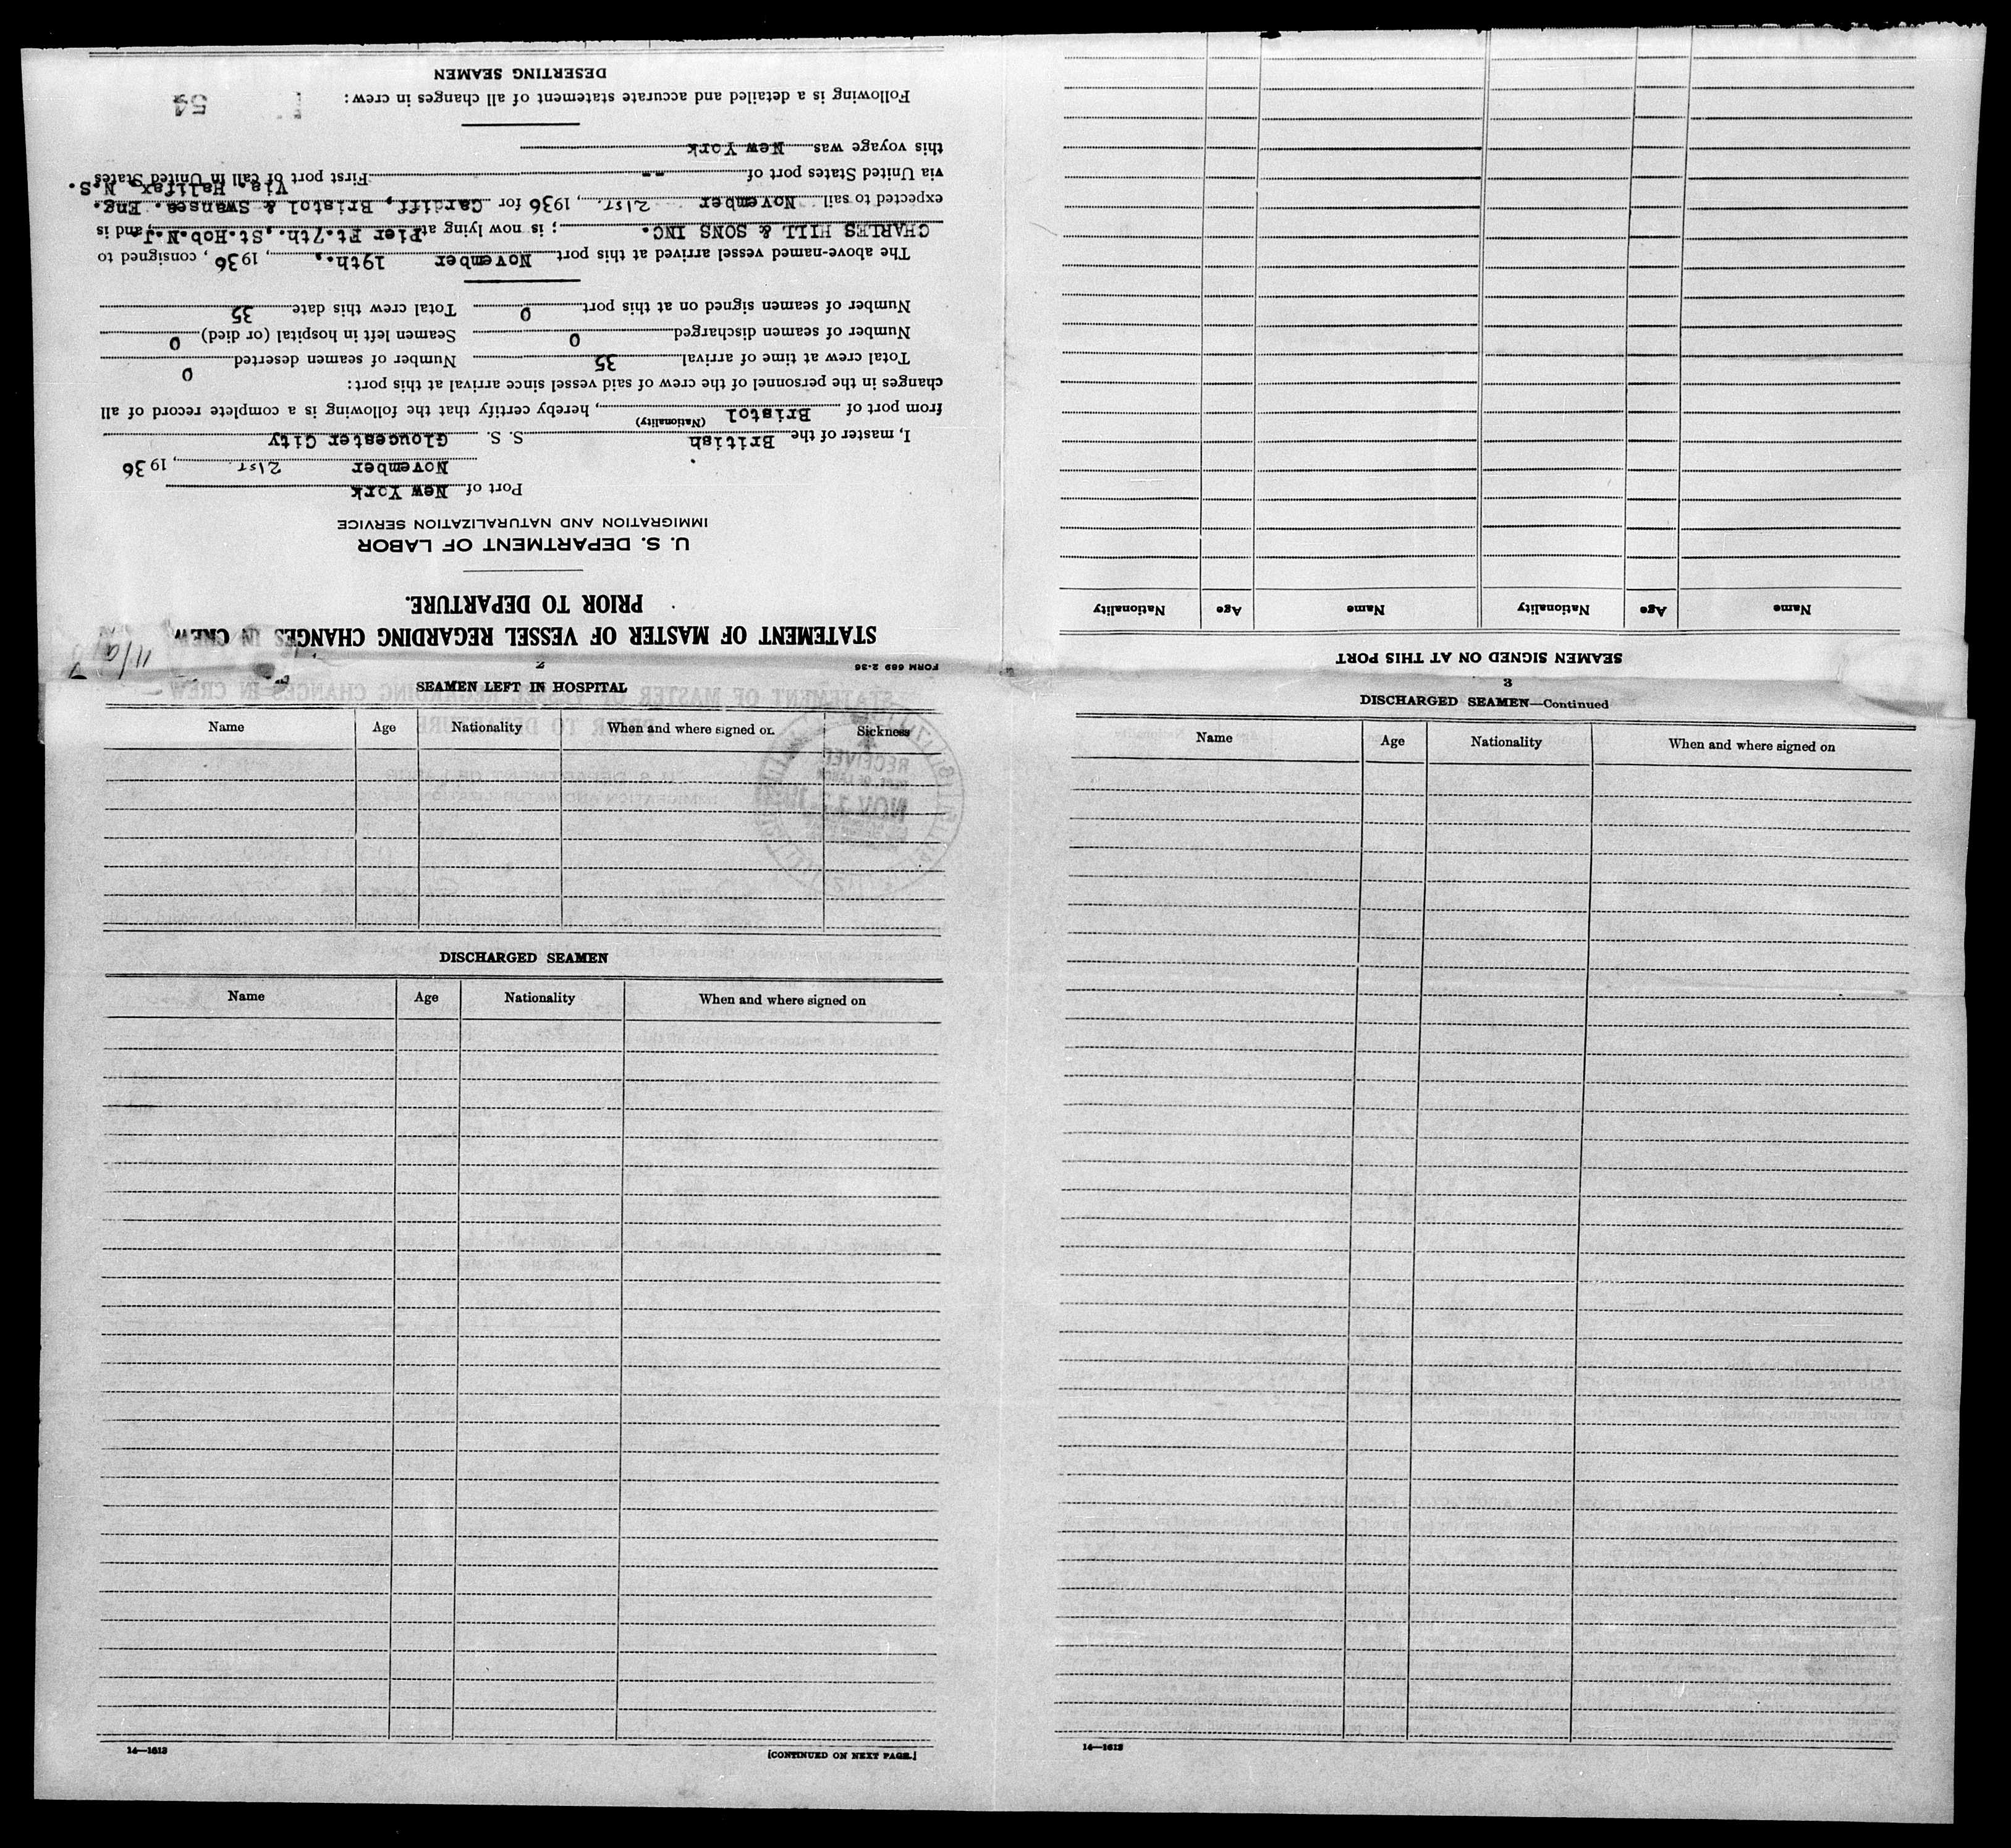 FORM 689 2-36
STATEMENT OF MASTER OF VESSEL REGARDING CHANGES IN CREW
PRIOR TO DEPARTURE.
U. S. DEPARTMENT OF LABOR
IMMIGRATION AND NATURALIZATION SERVICE
Port of New York
November 21st., 1936
I, master of the British S. S. Gloucester City
(Nationality)
from port of Bristol, hereby certify that the following is a complete record of all
changes in the personnel of the crew of said vessel since arrival at this port:
Total crew at time of arrival 35 Number of seamen deserted 0
Number of seamen discharged 0 Seamen left in hospital (or died) 0
Number of seamen signed on at this port 0 Total crew this date 35
The above-named vessel arrived at this port November 19th., 1936, consigned to
CHARLES HILL & SONS INC.; is now lying at Pier Ft.7th., St.Hob.N.J., and is
expected to sail November 21st., 1936 for Cardiff, Bristol & Swansea. Eng.
Via. Halifax, N.S.
via United States port of -- First port of call in United States
this voyage was New York
Following is a detailed and accurate statement of all changes in crew:
54
DESERTING SEAMEN
SEAMEN SIGNED ON AT THIS PORT
Name Age Nationality Name Age Nationality
2
SEAMEN LEFT IN HOSPITAL
Name Age Nationality When and where signed or. Sickness
DISCHARGED SEAMEN
Name Age Nationality When and where signed on
14—1613 [CONTINUED ON NEXT PAGE.]
3
DISCHARGED SEAMEN—Continued
Name Age Nationality When and where signed on
14—1613